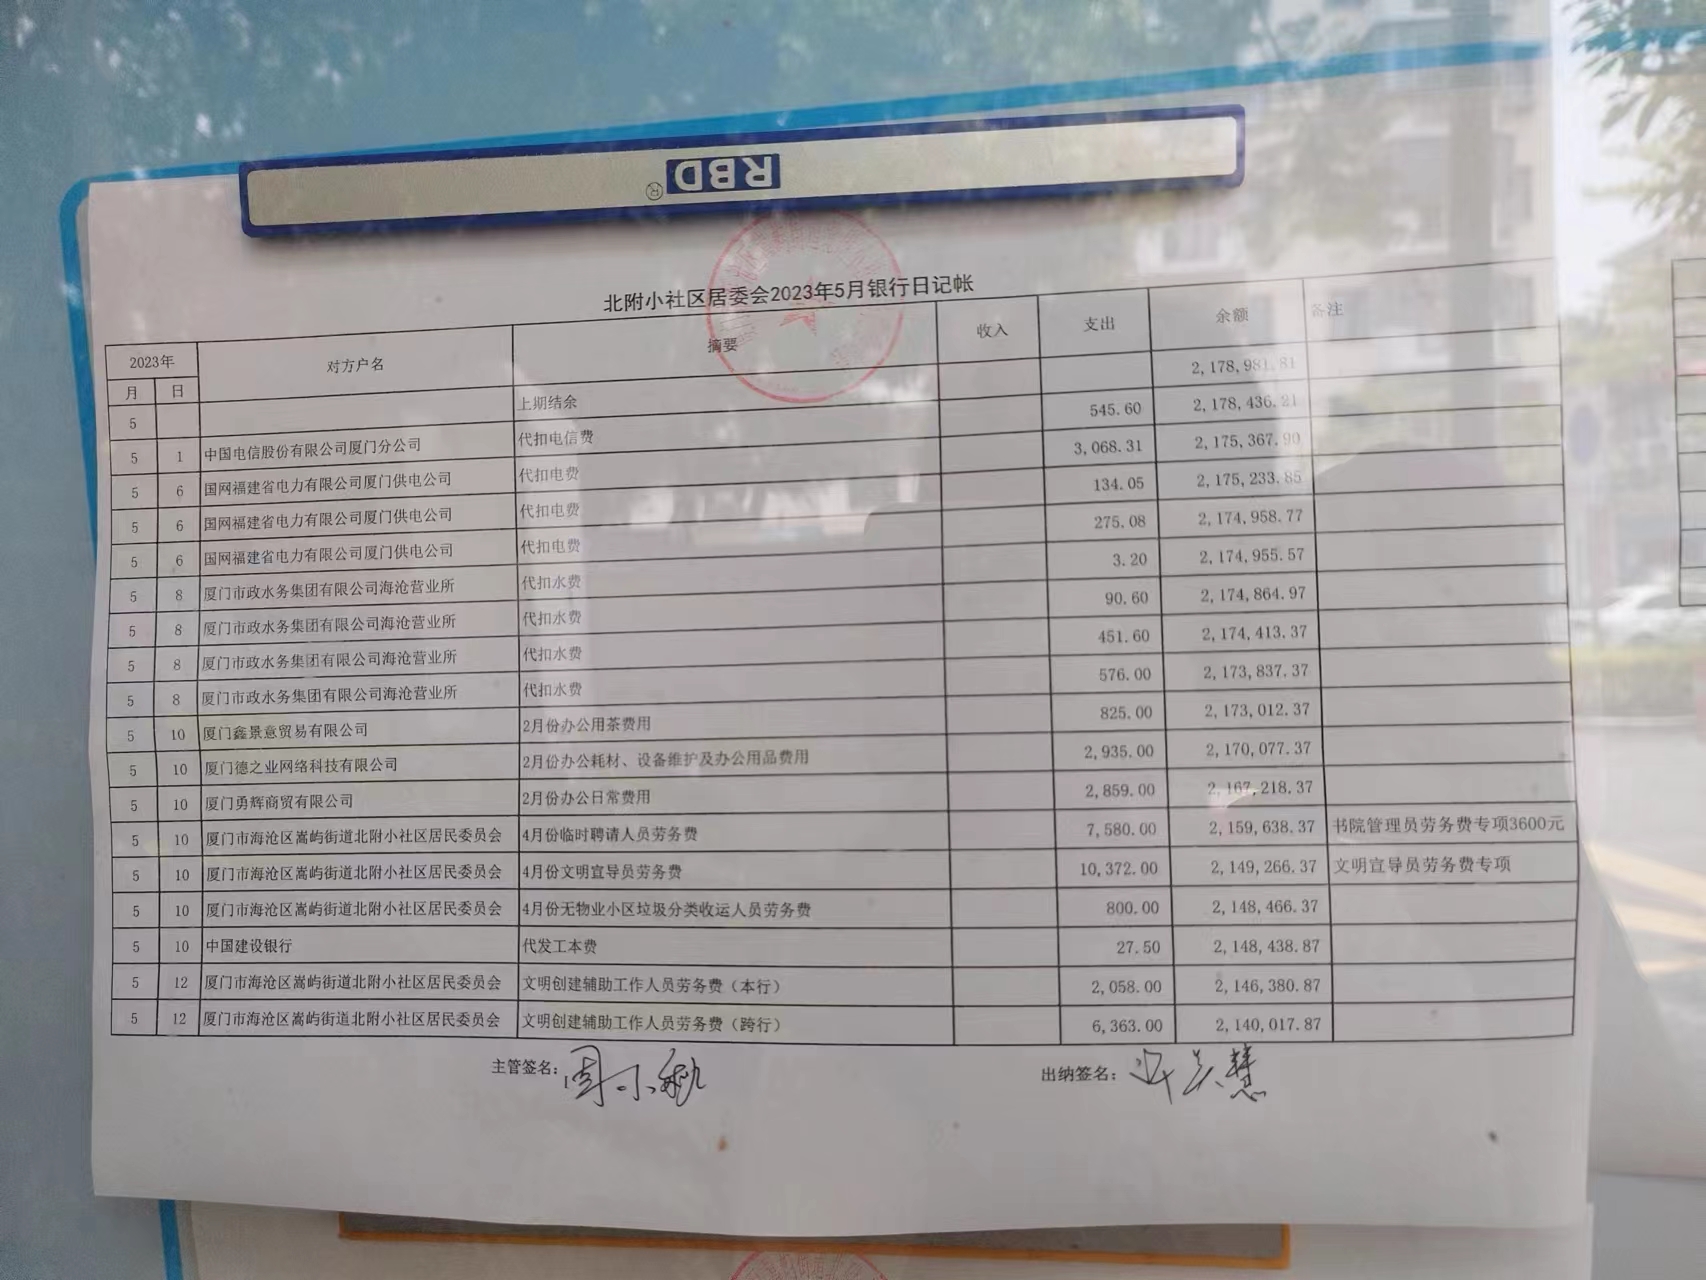 RBD®
北附小社区居委会2023年5月银行日记帐
2023年 对方户名 摘要 收入 支出 余额 备注
月 日
5 上期结余 2,178,981.81
5 1 中国电信股份有限公司厦门分公司 代扣电信费 545.60 2,178,436.21
5 6 国网福建省电力有限公司厦门供电公司 代扣电费 3,068.31 2,175,367.90
5 6 国网福建省电力有限公司厦门供电公司 代扣电费 134.05 2,175,233.85
5 6 国网福建省电力有限公司厦门供电公司 代扣电费 275.08 2,174,958.77
5 8 厦门市政水务集团有限公司海沧营业所 代扣水费 3.20 2,174,955.57
5 8 厦门市政水务集团有限公司海沧营业所 代扣水费 90.60 2,174,864.97
5 8 厦门市政水务集团有限公司海沧营业所 代扣水费 451.60 2,174,413.37
5 8 厦门市政水务集团有限公司海沧营业所 代扣水费 576.00 2,173,837.37
5 10 厦门鑫景意贸易有限公司 2月份办公用茶费用 825.00 2,173,012.37
5 10 厦门德之业网络科技有限公司 2月份办公耗材、设备维护及办公用品费用 2,935.00 2,170,077.37
5 10 厦门勇辉商贸有限公司 2月份办公日常费用 2,859.00 2,167,218.37
5 10 厦门市海沧区嵩屿街道北附小社区居民委员会 4月份临时聘请人员劳务费 7,580.00 2,159,638.37 书院管理员劳务费专项3600元
5 10 厦门市海沧区嵩屿街道北附小社区居民委员会 4月份文明宣导员劳务费 10,372.00 2,149,266.37 文明宣导员劳务费专项
5 10 厦门市海沧区嵩屿街道北附小社区居民委员会 4月份无物业小区垃圾分类收运人员劳务费 800.00 2,148,466.37
5 10 中国建设银行 代发工本费 27.50 2,148,438.87
5 12 厦门市海沧区嵩屿街道北附小社区居民委员会 文明创建辅助工作人员劳务费（本行） 2,058.00 2,146,380.87
5 12 厦门市海沧区嵩屿街道北附小社区居民委员会 文明创建辅助工作人员劳务费（跨行） 6,363.00 2,140,017.87
主管签名：周小 出纳签名：